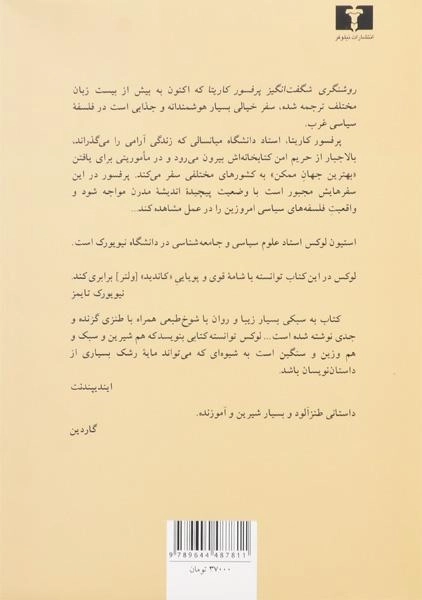 انتشارات نیلوفر
روشنگری شگفت‌انگیز پرفسور کاریتا که اکنون به بیش از بیست زبان
مختلف ترجمه شده، سفر خیالی بسیار هوشمندانه و جذابی است در فلسفهٔ
سیاسی غرب.
پرفسور کاریتا، استاد دانشگاه میانسالی که زندگی آرامی را می‌گذراند،
بالاجبار از حریم امن کتابخانه‌اش بیرون می‌رود و در مأموریتی برای یافتن
«بهترین جهانِ ممکن» به کشورهای مختلفی سفر می‌کند. پرفسور در این
سفرهایش مجبور است با وضعیت پیچیدهٔ اندیشهٔ مدرن مواجه شود و
واقعیتِ فلسفه‌های سیاسی امروزین را در عمل مشاهده کند...
استیون لوکس استاد علوم سیاسی و جامعه‌شناسی در دانشگاه نیویورک است.
لوکس در این کتاب توانسته با شامهٔ قوی و پویاییِ «کاندید» [ولتر] برابری کند.
نیویورک تایمز
کتاب به سبکی بسیار زیبا و روان با شوخ‌طبعی همراه با طنزی گزنده و
جدی نوشته شده است... لوکس توانسته کتابی بنویسد که هم شیرین و سبک و
هم وزین و سنگین است به شیوه‌ای که می‌تواند مایهٔ رشک بسیاری از
داستان‌نویسان باشد.
ایندیپندنت
داستانی طنزآلود و بسیار شیرین و آموزنده.
گاردین
9 789644 487811
۳۷۰۰۰ تومان